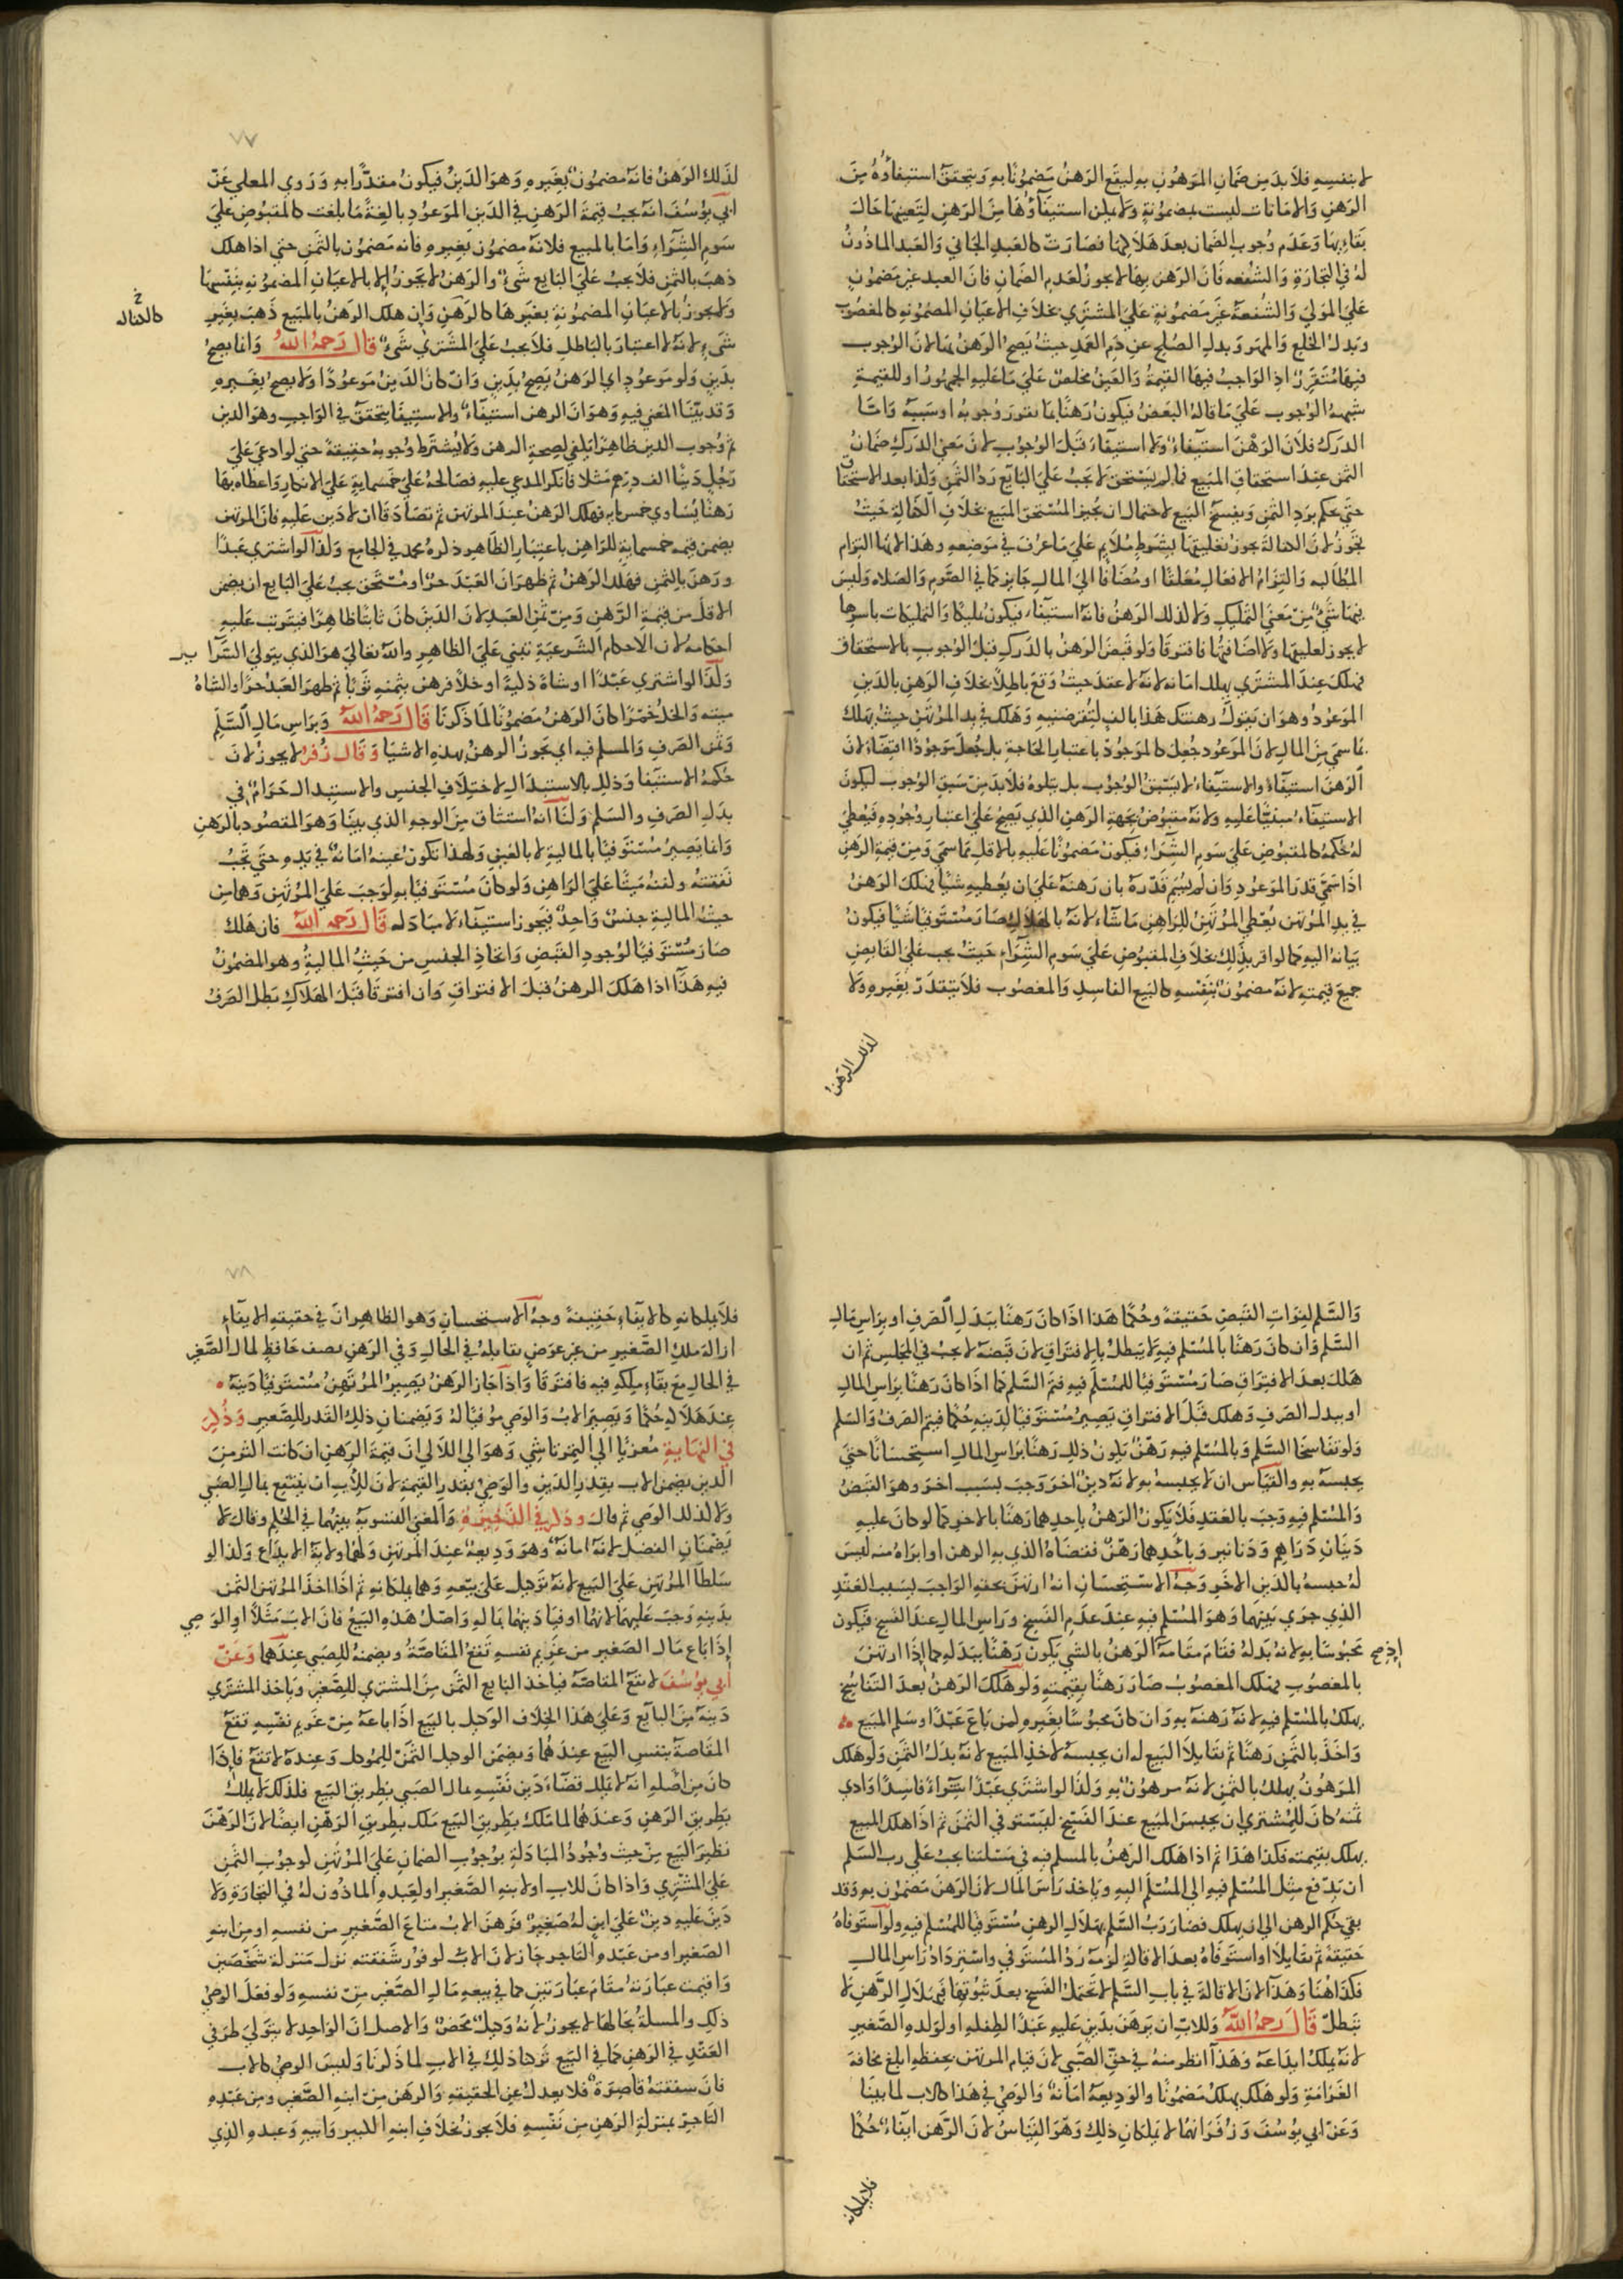 لا بنفسه فلا بد من ضمان المرهون به ليقع الرهن مضمونا به ويتحقق استيفاؤه من
الرهن والامانات ليست بمضمونة ولا يمكن استيفاؤها من الرهن لتعينها حال
بقائها وعدم وجوب الضمان بعد هلاكها فصارت كالعبد الجاني والعبد الماذون
له في التجارة والشفعه فان الرهن بها لا يجوز لعدم الضمان فان العبد غير مضمون
علي المولي والشفعة غير مضمونة علي المشتري بخلاف الاعيان المضمونه كالمغصوب
وبدل الخلع والمهر وبدل الصلح عن دم العمد حيث يصح الرهن بها لان الوجوب
فيها متقرر اذ الواجب فيها القيمة والعين مخلص علي ما عليه الجمهور او للقيمة
شبهة الوجوب علي ما قاله البعض فيكون رهنا بما تقرر وجوبه او سببه واما
الدرك فلان الرهن استيفاء ولا استيفاء قبل الوجوب لان معني الدرك ضمان
الثمن عند استحقاق المبيع فما لم يستحق لا يجب علي البايع رد الثمن ولذا بعد الاستحقاق
حتي يحكم برد الثمن ويفسخ البيع لاحتمال ان يجيز المستحق البيع بخلاف الكفالة حيث
تجوز لان الكفالة يجوز تعليقها بشرط ملايم علي ما عرف في موضعه وهذا لانها التزام
المطالبه والتزام الافعال معلقا او مضافا الي المال جايز كما في الصوم والصلاه وليس
فيها شيء من معني التمليك ولا كذلك الرهن فانه استيفاء فيكون تمليكا والتمليكات باسرها
لا يجوز تعليقها ولا اضافتها فافترقا ولو قبض الرهن بالدرك قبل الوجوب بالاستحقاق
فهلك عند المشتري يهلك امانه لانه لا عقد حيث وقع باطلا بخلاف الرهن بالدين
الموعود وهو ان يقول رهنتك هذا بالف لتقرضنيه وهلك في يد المرتهن حيث يهلك
بما سمي من المال لان الموعود جعل كالموجود باعتبار الحاجة بل جعل موجودا اقتضاء لان
الرهن استيفاء والاستيفاء لا يسبق الوجوب بل يتلوه فلا بد من سبق الوجوب ليكون
الاستيفاء مبنيا عليه ولانه مقبوض بجهة الرهن الذي يصح علي اعتبار وجوده فيعطي
له حكمه كالمقبوض علي سوم الشراء فيكون مضمونا عليه بالاقل مما سمي ومن قيمة الرهن
اذا سمي قدر الموعود وان لم يسم قدره بان رهنه علي ان يعطيه شيا فهلك الرهن
في يد المرتهن يعطي المرتهن للراهن ما شاء لانه بالهلاك صار مستوفيا شيا فيكون
بيانه اليه كما لو اقر بذلك بخلاف المقبوض علي سوم الشراء حيث يجب علي القابض
جميع قيمته لانه مضمون بنفسه كالبيع الفاسد والمغصوب فلا يتقدر بغيره ولا
لذلك الرهن
٧٧
لذلك الرهن فانه مضمون بغيره وهو الدين فيكون مقدرا به وروي المعلي عن
ابي يوسف انه يجب قيمة الرهن في الدين الموعود بالغة ما بلغت كالمقبوض علي
سوم الشراء واما بالمبيع فلانه مضمون بغيره فانه مضمون بالثمن حتي اذا هلك
ذهب بالثمن فلا يجب علي البايع شيء والرهن لا يجوز الا بالاعيان المضمونه بنفسها
ولا يجوز بالاعيان المضمونة بغيرها كالرهن وان هلك الرهن بالمبيع ذهب بغير
خ
كالكفاله
شيء لانه لا اعتبار بالباطل فلا يجب علي المشتري شيء قال رحمه الله وانما يصح
بدين ولو موعود اي الرهن يصح بدين وان كان الدين موعودا ولا يصح بغيره
وقد بينا المعني فيه وهو ان الرهن استيفاء والاستيفا يتحقق في الواجب وهو الدين
ثم وجوب الدين ظاهرا يكفي لصحة الرهن ولا يشترط وجوبه حقيقة حتي لو ادعي علي
رجل دينا الف درهم مثلا فانكر المدعي عليه فصالحه علي خمسماية علي الانكار واعطاه بها
رهنا يساوي خمسمايه فهلك الرهن عند المرتهن ثم تصادقا ان لا دين عليه فان المرتهن
يضمن قيمه خمسماية للراهن باعتبار الظاهر ذكره محمد في الجامع ولذا لو اشتري عبدا
ورهن بالثمن فهلك الرهن ثم ظهر ان العبد حر او مستحق يجب علي البايع ان يضمن
الاقل من قيمة الرهن ومن ثمن العبد لان الدين كان ثابتا ظاهرا فيترتب عليه
احكامه لان الاحكام الشرعية تبني علي الظاهر والله تعالي هو الذي يتولي السرا ير
ولذا لو اشتري عبدا او شاة ذكية او خلا فرهن بثمنه ثوبا ثم ظهر العبد حرا والشاة
ميته والخل خمرا كان الرهن مضمونا لما ذكرنا قال رحمه الله وبراس مال السلم
وثمن الصرف والمسلم فيه اي يجوز الرهن بهذه الاشيا وقال زفر لا يجوز لان
حكمه الاستيفا وذلك بالاستبدال لاختلاف الجنس والاستبدال حرام في
بدل الصرف والسلم ولنا انه استيثاق من الوجه الذي بينا وهو المقصود بالرهن
وانما يصير مستوفيا بالمالية لا بالعين ولهذا تكون عينه امانة في يده حتي تجب
نفقته وكفنه ميتا علي الراهن ولو كان مستوفيا به لوجب علي المرتهن وهما من
حيث المالية جنس واحد فيجوز استيفاء لا مبادله قال رحمه الله فان هلك
صار مستوفيا لوجود القبض واتحاد الجنس من حيث المالية وهو المضمون
فيه هذا اذا هلك الرهن قبل الافتراق وان افترقا قبل الهلاك بطل الصرف
والسلم لفوات القبض حقيقة وحكما هذا اذا كان رهنا ببدل الصرف او براس مال
السلم وان كان رهنا بالمسلم فيه لا يبطل بالافتراق لان قبضه لا يجب في المجلس ثم ان
هلك بعد الافتراق صار مستوفيا للمسلم فيه فتم السلم كما اذا كان رهنا براس المال
او ببدل الصرف وهلك قبل الافتراق يصير مستوفيا لدينه حكما فيتم الصرف والسلم
ولو تفاسخا السلم وبالمسلم فيه رهن يكون ذلك رهنا براس المال استحسانا حتي
يحبسه به والقياس ان لا يحبسه به لانه دين اخر وجب بسبب اخر وهو القبض
والمسلم فيه وجب بالعقد فلا يكون الرهن باحدهما رهنا بالاخر كما لو كان عليه
دينان دراهم ودنانير وباحدهما رهن فقضاه الذي به الرهن او ابراه منه ليس
له حبسه بالدين الاخر وجه الاستحسان انه ارتهن بحقه الواجب بسبب العقد
الذي جري بينهما وهو المسلم فيه عند عدم الفسخ وراس المال عند الفسخ فيكون
محبوسا به لانه بدله فقام مقامه اذ الرهن بالشي يكون رهنا ببدله كما اذا ارتهن
اذ صح
بالمغصوب فهلك المغصوب صار رهنا بقيمته ولو هلك الرهن بعد التفاسخ
يهلك بالمسلم فيه لانه رهنه به وان كان محبوسا بغيره كمن باع عبدا وسلم المبيع
واخذ بالثمن رهنا ثم تقايلا البيع له ان يحبسه لاخذ المبيع لانه بدل الثمن ولو هلك
المرهون يهلك بالثمن لانه مرهون به ولذا لو اشتري عبدا شراء فاسدا وادي
ثمنه كان للمشتري ان يحبس المبيع عند الفسخ ليستوفي الثمن ثم اذا هلك المبيع
يهلك بقيمته فكذا هذا ثم اذا هلك الرهن بالمسلم فيه في مسئلتنا يجب علي رب السلم
ان يدفع مثل المسلم فيه الي المسلم اليه وياخذ راس المال لان الرهن مضمون به وقد
بقي حكم الرهن الي ان يهلك فصار رب السلم بهلاك الرهن مستوفيا للمسلم فيه ولو استوفاه
حقيقة ثم تقايلا او استوفاه بعد الاقالة لزمه رد المستوفي واسترداد راس المال
فكذا هنا وهذا لان الاقالة في باب السلم لا تحتمل الفسخ بعد ثبوتها فبهلاك الرهن لا
تبطل قال رحمه الله وللاب ان يرهن بدين عليه عبدا لطفله اي لولده الصغير
لانه يملك ايداعه وهذا انظر منه في حق الصبي لان قيام المرتهن بحفظه ابلغ مخافة
الغرامة ولو هلك يهلك مضمونا والوديعة امانة والوصي في هذا كالاب لما بينا
وعن ابي يوسف وزفر انهما لا يملكان ذلك وهو القياس لان الرهن ايفاء حكما
فلا يملكانه
٧٨
فلا يملكانه كالايفاء حقيقة وجه الاستحسان وهو الظاهر ان في حقيقة الايفاء
ازالة ملك الصغير من غير عوض يقابله في الحال وفي الرهن نصف حافظ لمال الصغير
في الحال مع بقاء ملكه فيه فافترقا واذا جاز الرهن يصير المرتهن مستوفيا دينه
عند هلاكه حكما ويصير الاب والوصي موفيا له ويضمنان ذلك القدر للصغير وذكر
في النهاية معزيا الي التمرتاشي وهو الي اللالي ان قيمة الرهن ان كانت اكثر من
الدين يضمن الاب بقدر الدين والوصي بقدر القيمة لان للاب ان ينتفع بمال الصبي
ولا كذلك الوصي ثم قال وذكر في الذخيرة والمغني التسوية بينهما في الحكم وقال لا
يضمنان الفضل لانه امانة وهو وديعة عند المرتهن ولهما ولاية الايداع ولذا لو
سلطا المرتهن علي البيع لانه توكيل علي بيعه وهما يملكانه ثم اذا اخذ المرتهن الثمن
بدينه وجب عليهما لانهما اوفيا دينهما بماله واصل هذه البيع فان الاب مثلا او الوصي
اذا باع مال الصغير من غريم نفسه تقع المقاصة ويضمنه للصبي عندهما وعن
ابي يوسف لا تقع المقاصة فياخذ البايع الثمن من المشتري للصغير وياخذ المشتري
دينه من البايع وعلي هذا الخلاف الوكيل بالبيع اذا باعه من غريم نفسه تقع
المقاصة بنفس البيع عندهما ويضمن الوكيل الثمن للموكل وعنده لا تقع فاذا
كان من اصله انه لا يملك قضاء دين نفسه بمال الصبي بطريق البيع فلذلك لا يملك
بطريق الرهن وعندهما لما ملك بطريق البيع ملك بطريق الرهن ايضا لان الرهن
نظير البيع من حيث وجود المبادلة بوجوب الضمان علي المرتهن لوجوب الثمن
علي المشتري واذا كان للاب او لابنه الصغير او لعبده الماذون له في التجارة ولا
دين عليه دين علي ابن له صغير فرهن الاب متاع الصغير من نفسه او من ابنه
الصغير او من عبده التاجر جاز لان الاب لوفور شفقته نزل منزلة شخصين
واقيمت عبارته مقام عبارتين كما في بيعه مال الصغير من نفسه ولو فعل الوصي
ذلك والمسلة بحالها لا يجوز لانه وكيل محض والاصل ان الواحد لا يتولي طرفي
العقد في الرهن كما في البيع تركنا ذلك في الاب لما ذكرنا وليس الوصي كالاب
فان شفقته قاصرة فلا يعدل عن الحقيقة والرهن من ابنه الصغير ومن عبده
التاجر بمنزلة الرهن من نفسه فلا يجوز بخلاف ابنه الكبير وابيه وعبده الذي